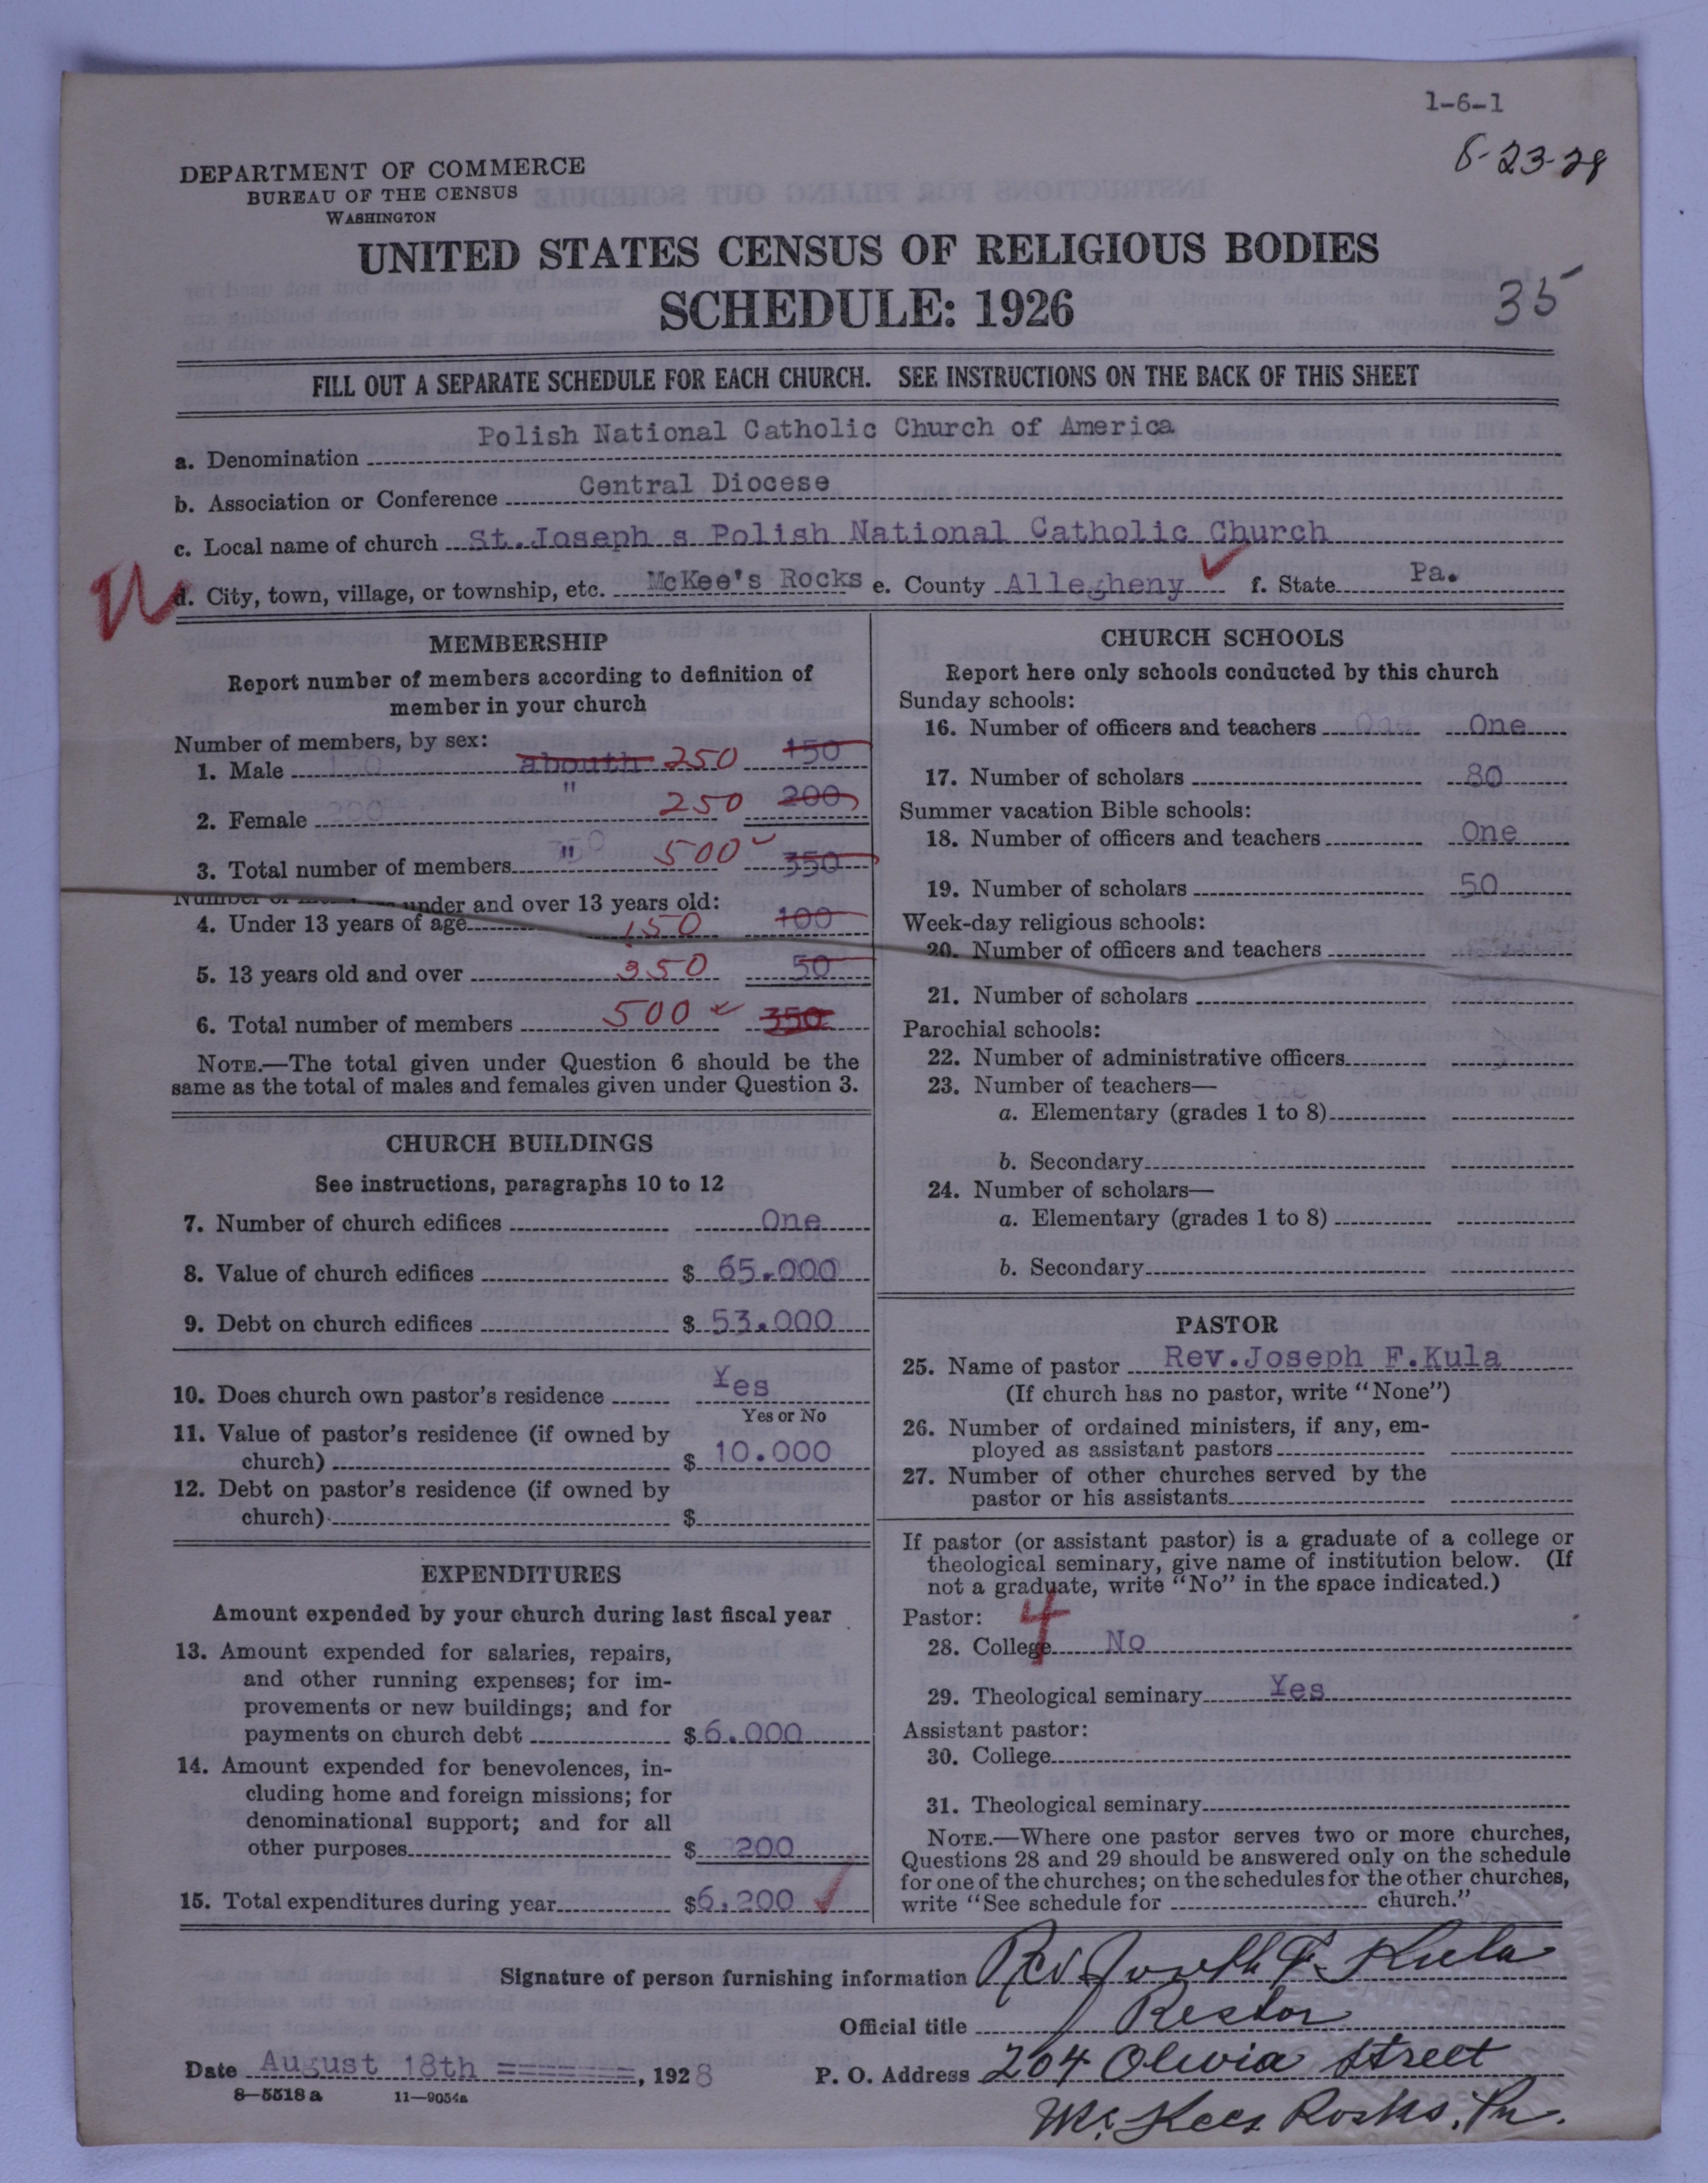 1-6-1
8-23-28
DEPARTMENT OF COMMERCE
BUREAU OF THE CENSUS
WASHINGTON
UNITED STATES CENSUS OF RELIGIOUS BODIES
SCHEDULE: 1926
35
FILL OUT A SEPARATE SCHEDULE FOR EACH CHURCH. SEE INSTRUCTIONS ON THE BACK OF THIS SHEET
a. Denomination Polish National Catholic Church of America
b. Association or Conference Central Diocese
c. Local name of church St.Joseph s Polish National Catholic Church
d. City, town, village, or township, etc. McKee's Rocks e. County Allegheny f. State Pa.
MEMBERSHIP
Report number of members according to definition of
member in your church
Number of members, by sex:
1. Male abouth 250 150
2. Female " 250 200
3. Total number of members " 500 350
Number of under and over 13 years old:
4. Under 13 years of age 150 100
5. 13 years old and over 350 50
6. Total number of members 500 350
NOTE.—The total given under Question 6 should be the
same as the total of males and females given under Question 3.
CHURCH BUILDINGS
See instructions, paragraphs 10 to 12
7. Number of church edifices One
8. Value of church edifices $ 65.000
9. Debt on church edifices $ 53.000
10. Does church own pastor's residence Yes
Yes or No
11. Value of pastor's residence (if owned by
church) $ 10.000
12. Debt on pastor's residence (if owned by
church) $
EXPENDITURES
Amount expended by your church during last fiscal year
13. Amount expended for salaries, repairs,
and other running expenses; for im-
provements or new buildings; and for
payments on church debt $ 6.000
14. Amount expended for benevolences, in-
cluding home and foreign missions; for
denominational support; and for all
other purposes $ 200
15. Total expenditures during year $6.200
CHURCH SCHOOLS
Report here only schools conducted by this church
Sunday schools:
16. Number of officers and teachers One
17. Number of scholars 80
Summer vacation Bible schools:
18. Number of officers and teachers One
19. Number of scholars 50
Week-day religious schools:
20. Number of officers and teachers
21. Number of scholars
Parochial schools:
22. Number of administrative officers
23. Number of teachers—
a. Elementary (grades 1 to 8)
b. Secondary
24. Number of scholars—
a. Elementary (grades 1 to 8)
b. Secondary
PASTOR
25. Name of pastor Rev.Joseph F.Kula
(If church has no pastor, write "None")
26. Number of ordained ministers, if any, em-
ployed as assistant pastors
27. Number of other churches served by the
pastor or his assistants
If pastor (or assistant pastor) is a graduate of a college or
theological seminary, give name of institution below. (If
not a graduate, write "No" in the space indicated.)
Pastor: 4
28. College No
29. Theological seminary Yes
Assistant pastor:
30. College
31. Theological seminary
NOTE.—Where one pastor serves two or more churches,
Questions 28 and 29 should be answered only on the schedule
for one of the churches; on the schedules for the other churches,
write "See schedule for church."
Signature of person furnishing information Rev Joseph F. Kula
Official title Rector
Date August 18th =======, 1928 P. O. Address 204 Olivia Street
8-5518 a 11-9054a
Mc Kees Rocks, Pa.